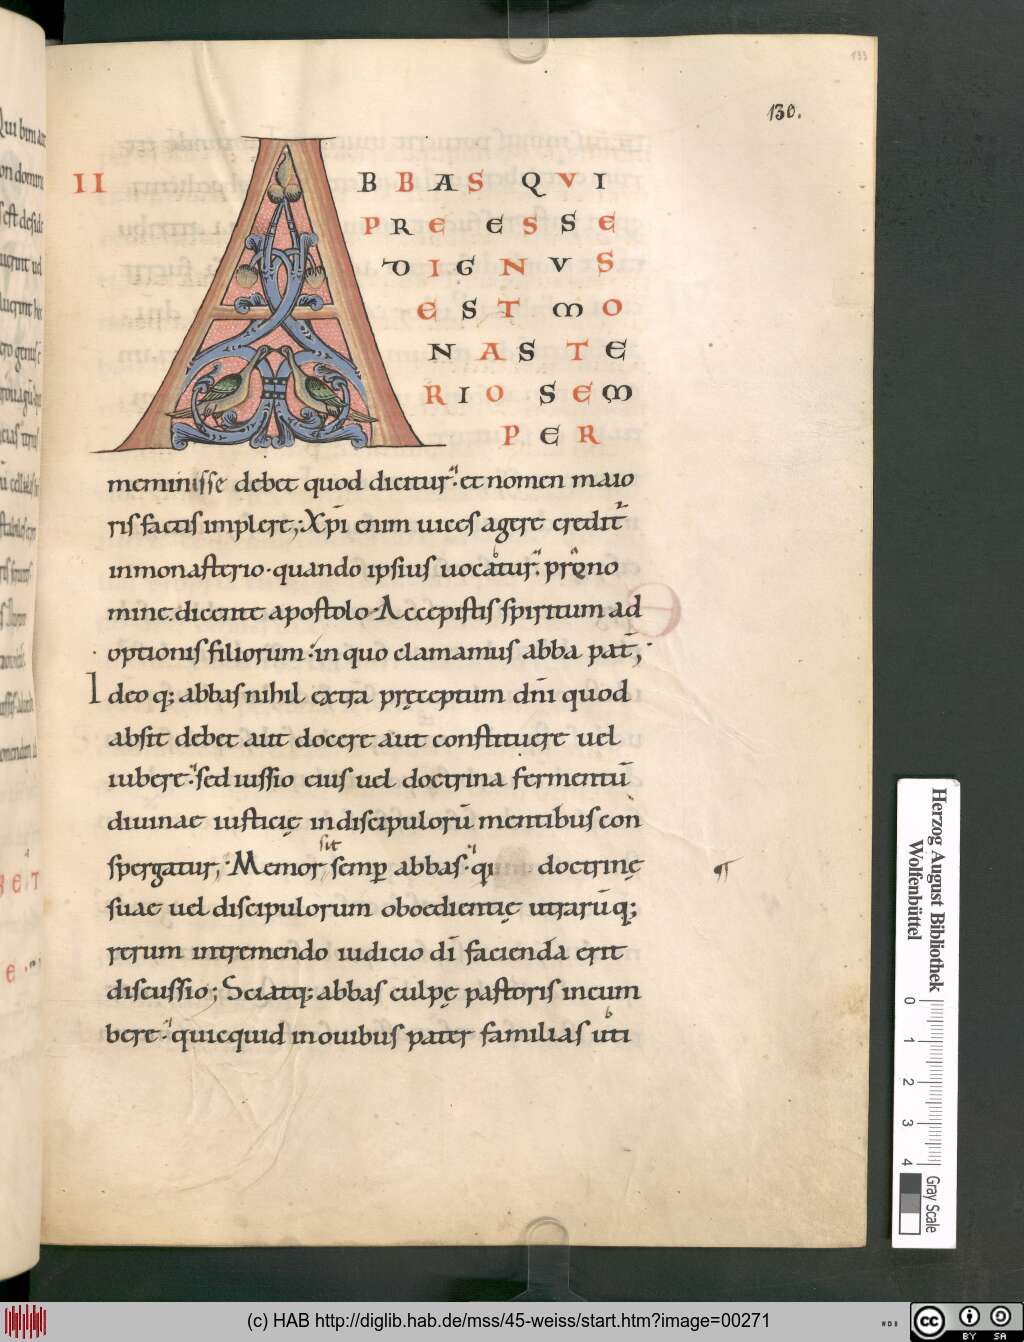 130.
II
ABBAS QVI
PRE ESSE
DIGNVS
EST MO
NASTE
RIO SEM
PER
meminisse debet quod dicitur. et nomen maio
ris factis implere; Xp̄i enim uices agere credit̄
inmonasterio. quando ipsius uocatur. pręno
mine. dicente apostolo. Accepistis spiritum ad
optionis filiorum. in quo clamamus abba pat̄;
Ideoq; abbas nihil extra pręceptum dn̄i quod
absit debet aut docere aut constituere uel
iubere. sed iussio eius uel doctrina fermentū
diuinae iusticię indiscipulorū mentibus con
spergatur; Memor sit semꝑ abbas. qi doctrinę
suae uel discipulorum oboedientię utrarūq;
rerum intremendo iudicio dī facienda erit
discussio; Sciatq; abbas culpę pastoris incum
bere. quicquid inouibus pater familias uti
Herzog August Bibliothek
Wolfenbüttel
0 1 2 3 4
Gray Scale
(c) HAB http://diglib.hab.de/mss/45-weiss/start.htm?image=00271
cc BY SA